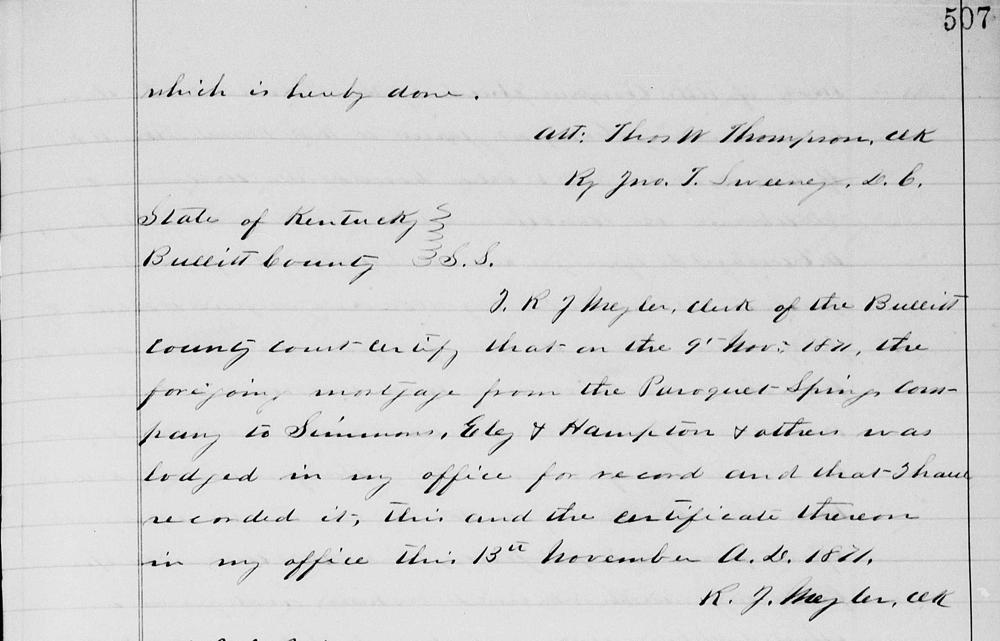 507
which is hereby done.
Att: Thos W Thompson, clk
By Jno. T. Sweeney, D. C.
State of Kentucky
Bullitt County S. S.
I, R J Meyler, Clerk of the Bullitt
County Court certify that on the 9th Nov: 1871, the
foregoing mortgage from the Paroquet Springs Com-
pany to Simmons, Eley & Hampton & others was
lodged in my office for record and that I have
recorded it, this and the certificate thereon
in my office this 13th November A. D. 1871.
R. J. Meyler, clk